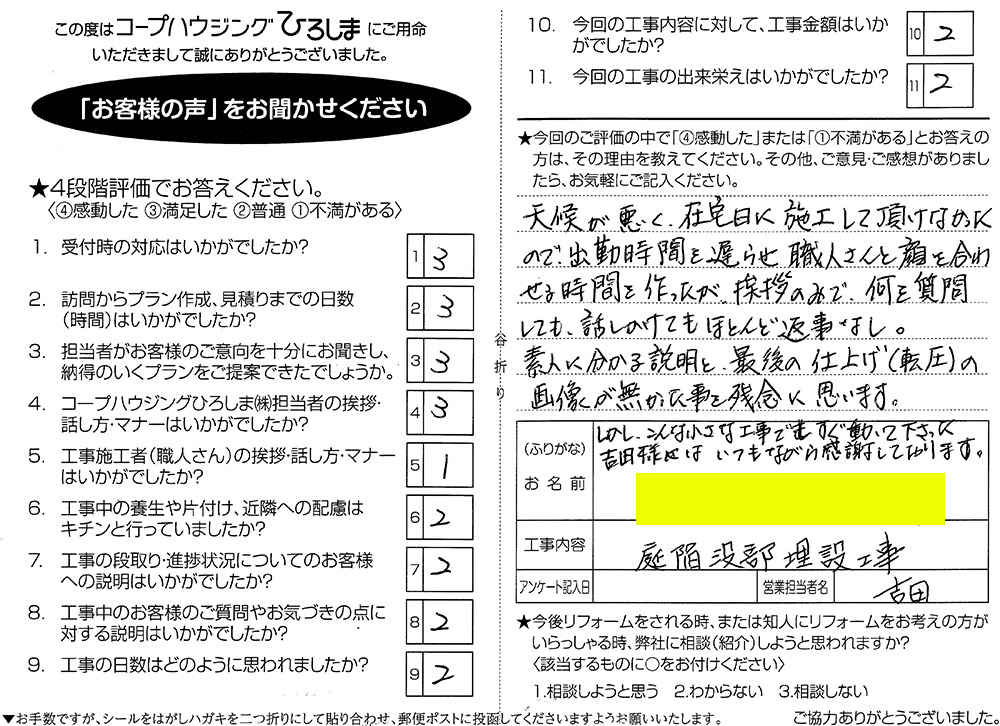 この度はコープハウジングひろしまにご用命
いただきまして誠にありがとうございました。
「お客様の声」をお聞かせください
★4段階評価でお答えください。
〈④感動した ③満足した ②普通 ①不満がある〉
1. 受付時の対応はいかがでしたか?
1 3
2. 訪問からプラン作成、見積りまでの日数
(時間)はいかがでしたか?
2 3
3. 担当者がお客様のご意向を十分にお聞きし、
納得のいくプランをご提案できたでしょうか。
3 3
4. コープハウジングひろしま㈱担当者の挨拶・
話し方・マナーはいかがでしたか?
4 3
5. 工事施工者(職人さん)の挨拶・話し方・マナー
はいかがでしたか?
5 1
6. 工事中の養生や片付け、近隣への配慮は
キチンと行っていましたか?
6 2
7. 工事の段取り・進捗状況についてのお客様
への説明はいかがでしたか?
7 2
8. 工事中のお客様のご質問やお気づきの点に
対する説明はいかがでしたか?
8 2
9. 工事の日数はどのように思われましたか?
9 2
▼お手数ですが、シールをはがしハガキを二つ折りにして貼り合わせ、郵便ポストに投函してくださいますようお願いいたします。
谷折り
10. 今回の工事内容に対して、工事金額はいか
がでしたか?
10 2
11. 今回の工事の出来栄えはいかがでしたか?
11 2
★今回のご評価の中で「④感動した」または「①不満がある」とお答えの
方は、その理由を教えてください。その他、ご意見・ご感想がありまし
たら、お気軽にご記入ください。
天候が悪く、在宅日に施工して頂けなかった
ので、出勤時間を遅らせ職人さんと顔を合わ
せる時間を作ったが、挨拶のみで、何を質問
しても、話しかけてもほとんど返事なし。
素人に分かる説明と、最後の仕上げ(転圧)の
画像が無かった事を残念に思います。
しかし、こんな小さな工事でもすぐ動いて下さった
吉田様にはいつもながら感謝しております。
(ふりがな)
お名前
工事内容
庭陥没部埋設工事
アンケート記入日
営業担当者名
吉田
★今後リフォームをされる時、または知人にリフォームをお考えの方が
いらっしゃる時、弊社に相談(紹介)しようと思われますか?
〈該当するものに○をお付けください〉
1.相談しようと思う 2.わからない 3.相談しない
ご協力ありがとうございました。